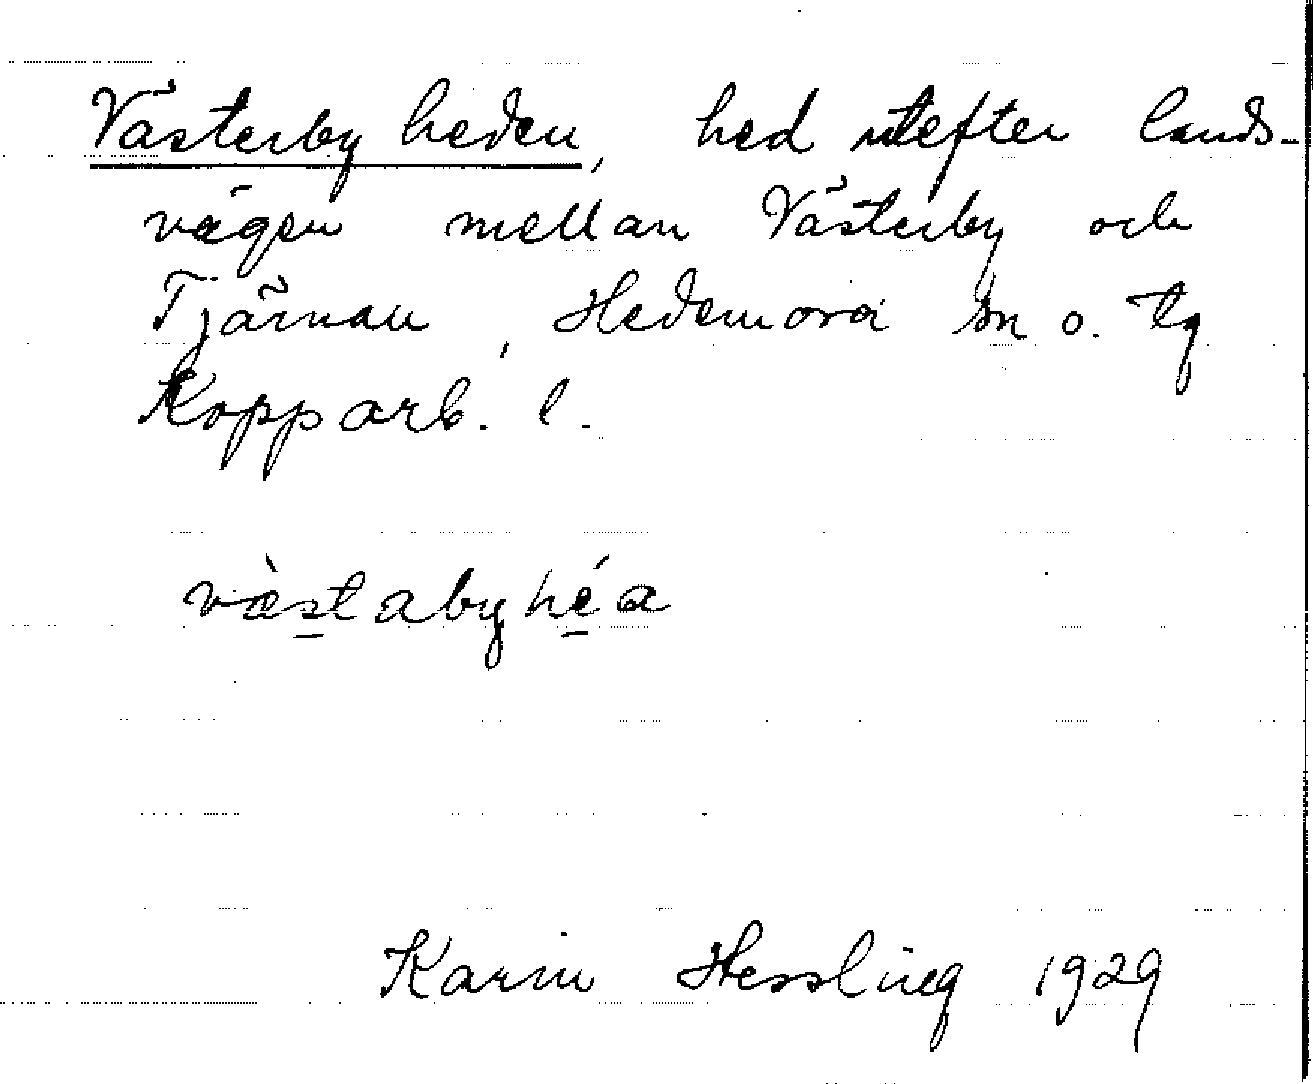 Västerby heden, hed utefter lands-
vägen mellan Västerby och
Tjärnan, Hedemora sn o. tg
Kopparb. l.
væ̀stabyhéa
Karin Hessling 1929